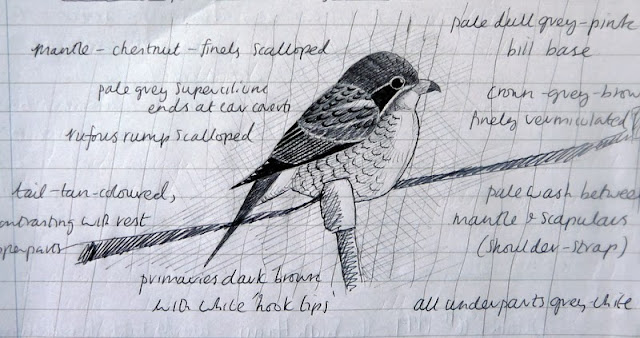 pale dull grey-pink
bill base
mantle - chestnut - finely scalloped
pale grey supercilium
ends at ear coverts
crown - grey-brow
finely vermiculated
rufous rump scalloped
tail - tan-coloured,
ontrasting with rest
pperparts
pale wash betwee
mantle & scapulars
(shoulder-strap)
primaries dark brown
with white 'hook tips'
all underparts grey white